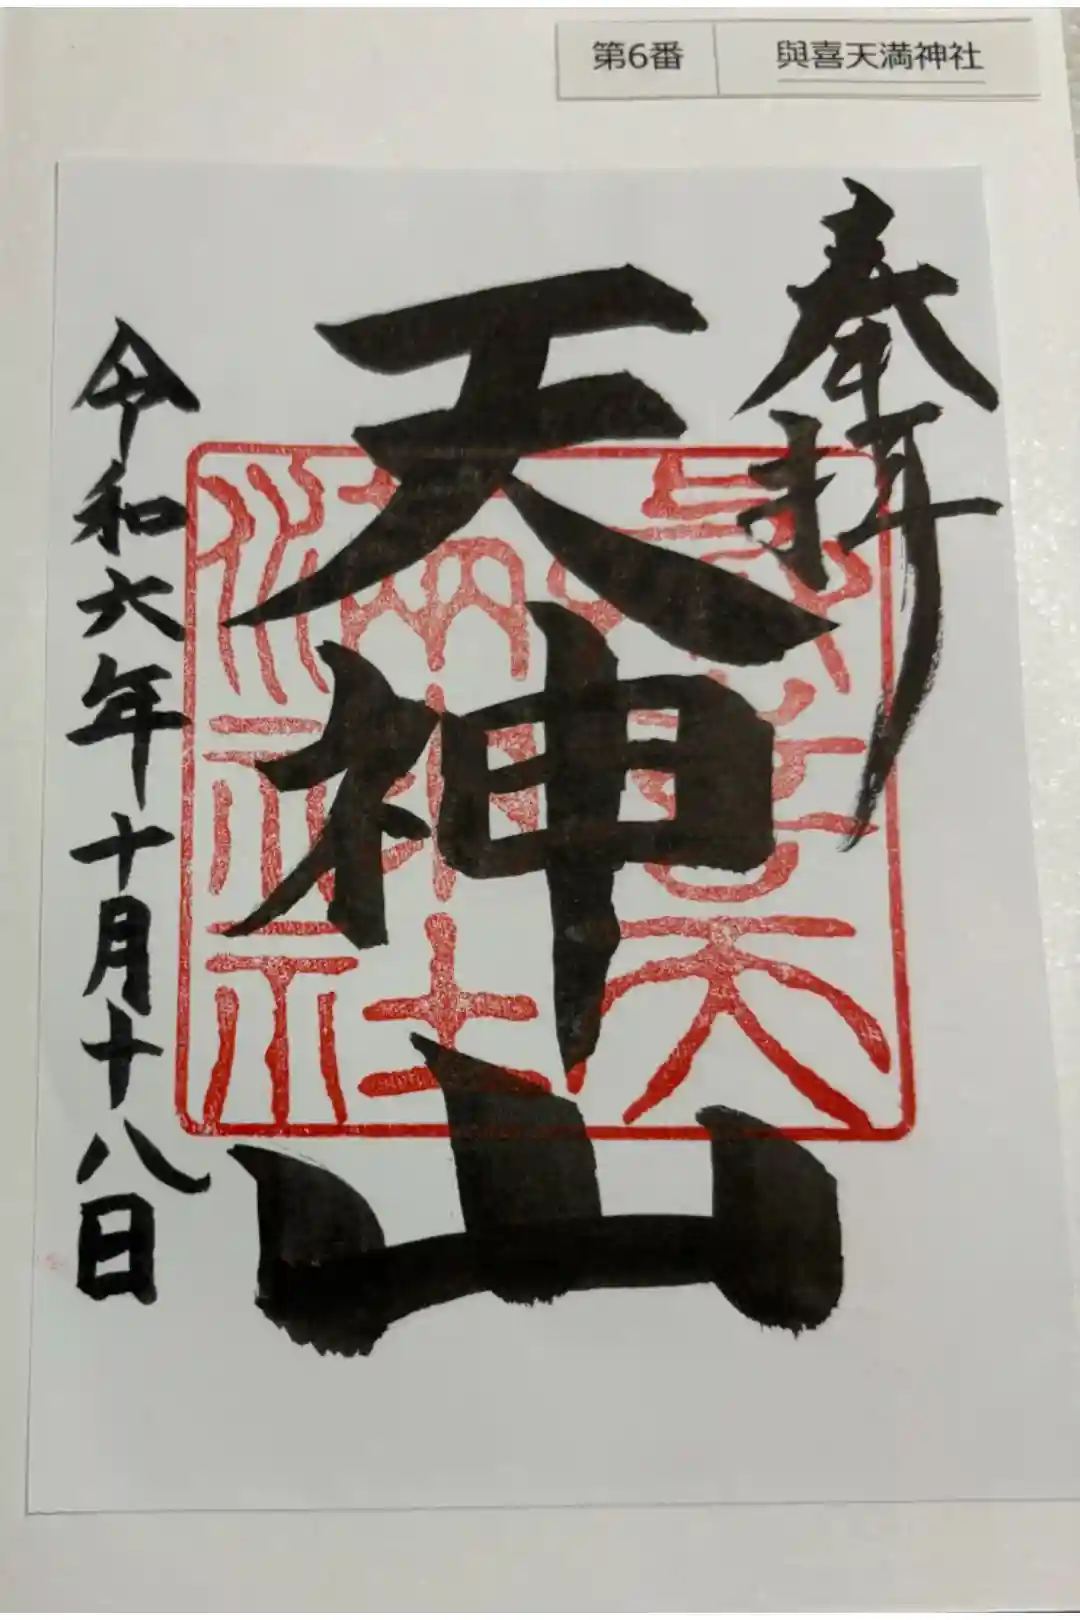 第6番 與喜天満神社
奉拝
天神山
令和六年十月十八日
與喜天満神社